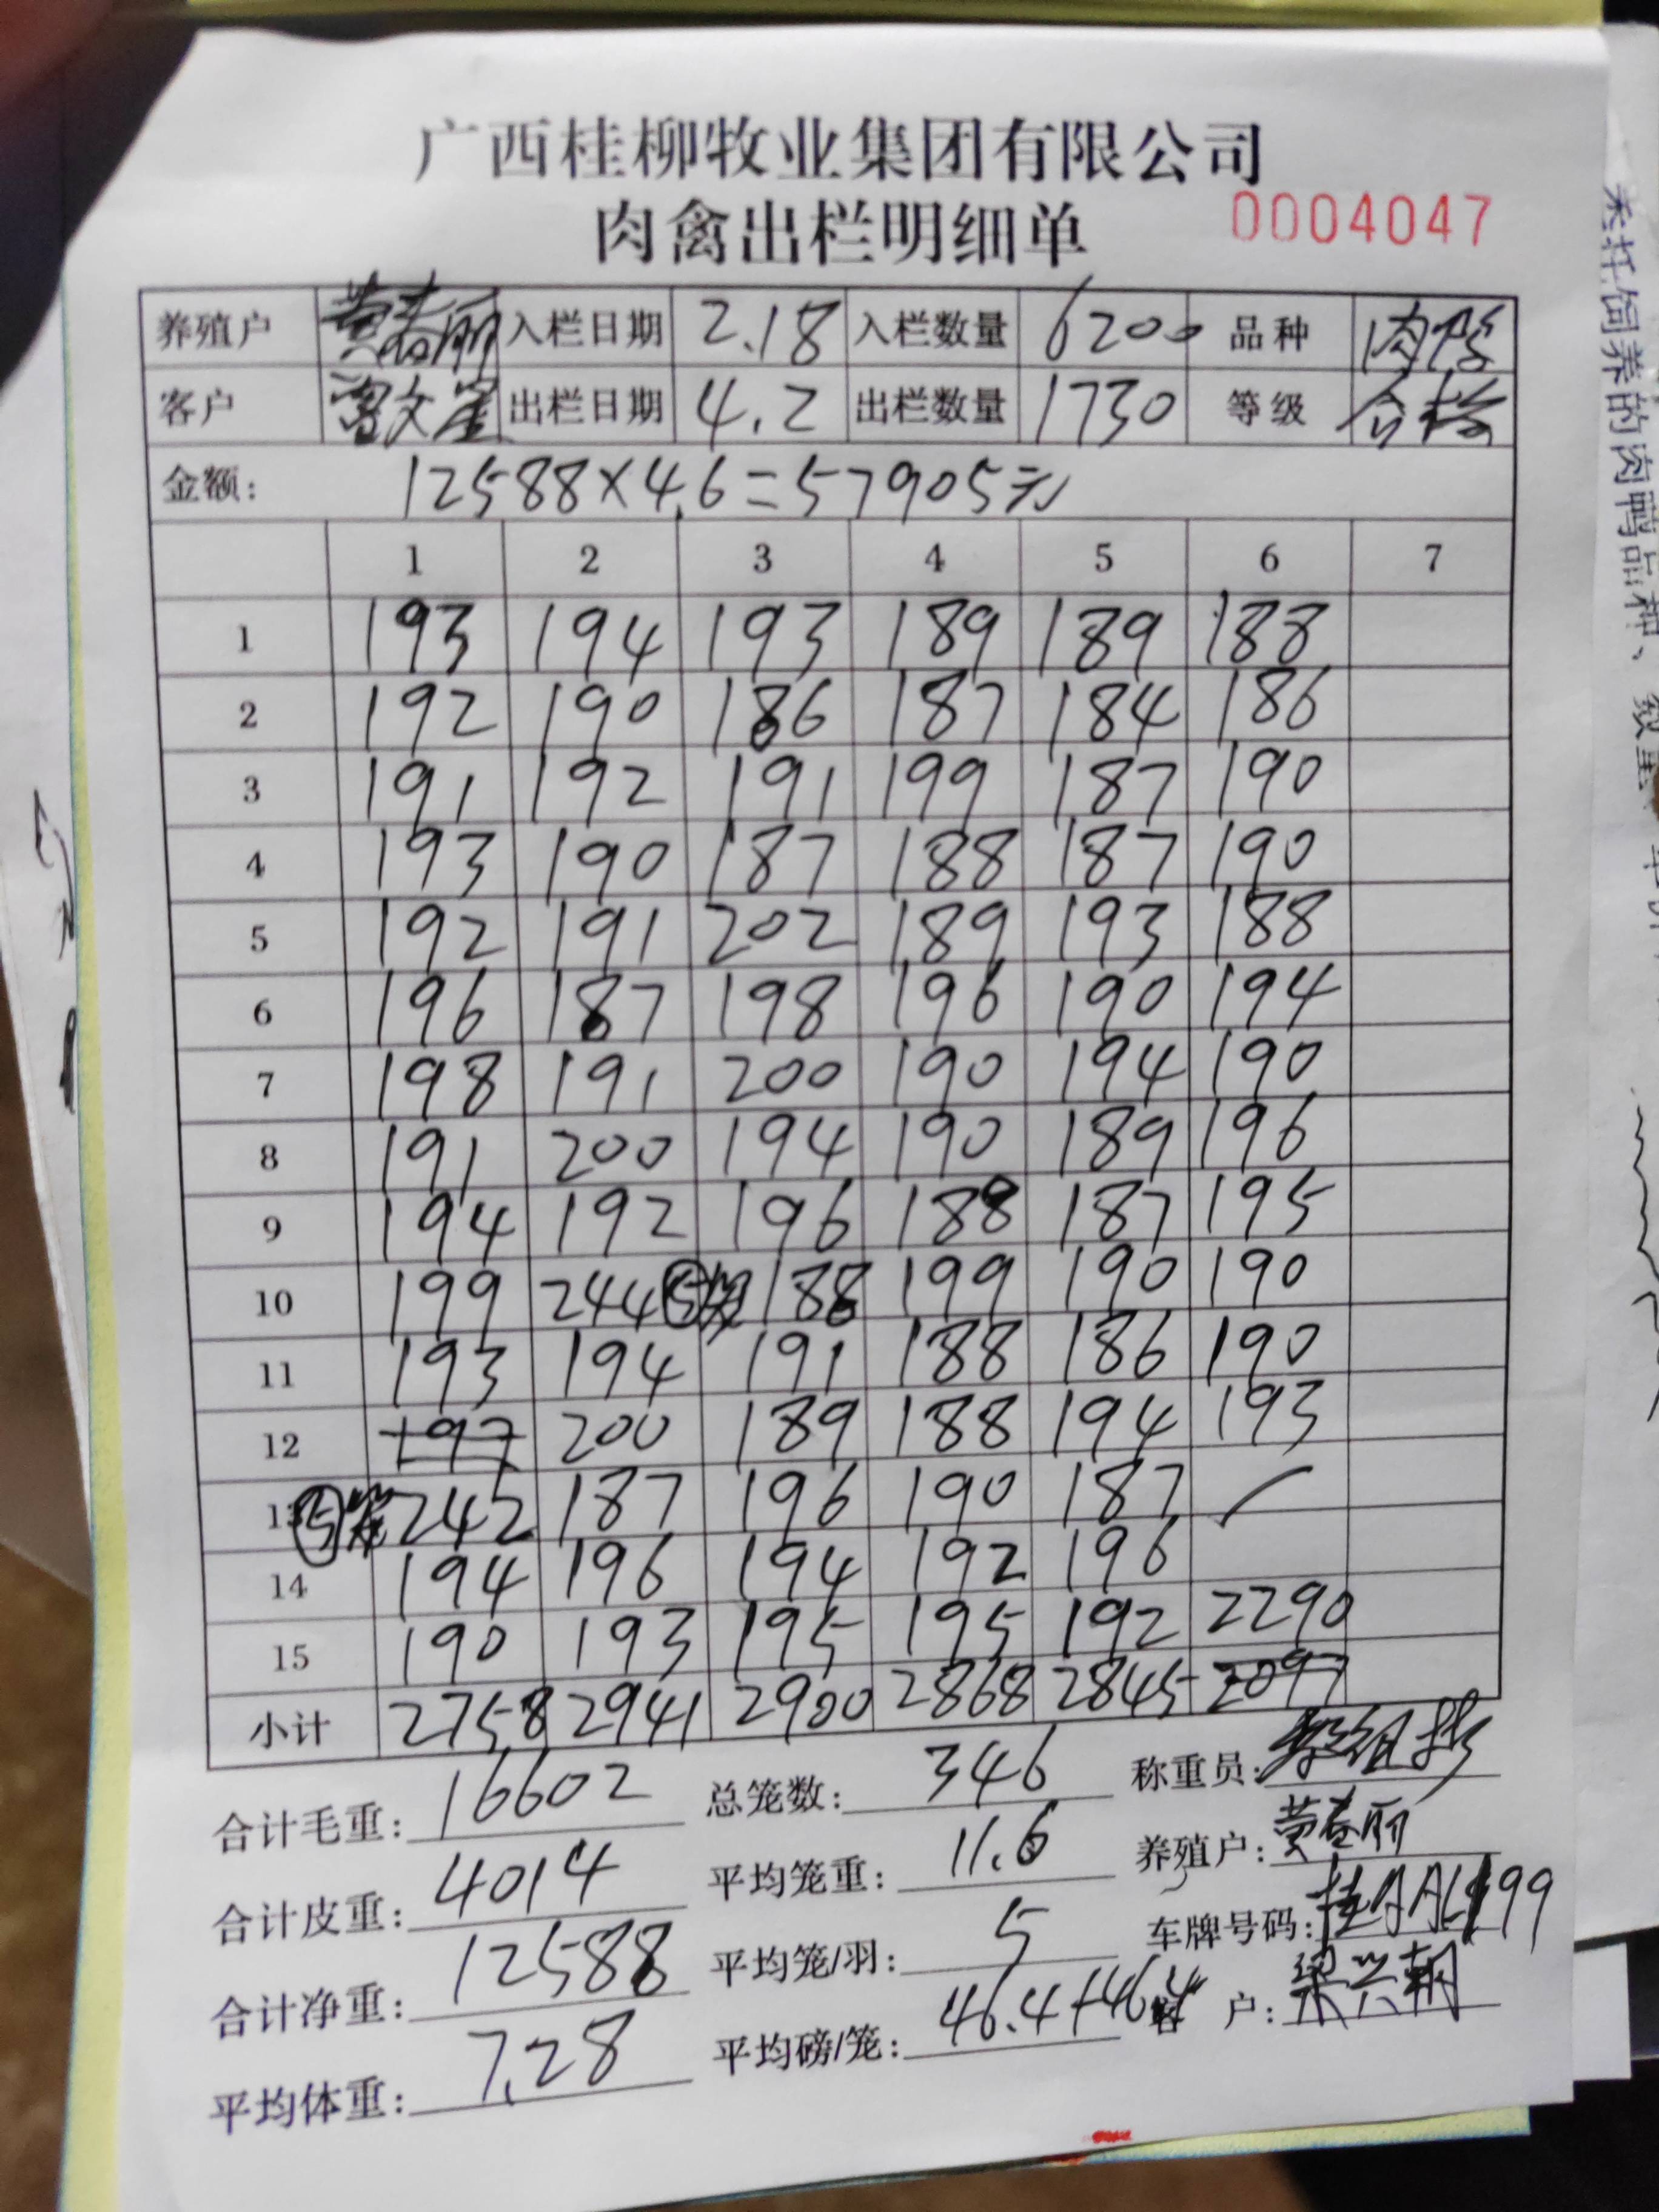 广西桂柳牧业集团有限公司
肉禽出栏明细单 0004047
养殖户 黄春丽 入栏日期 2.18 入栏数量 6200 品种 肉鸭
客户 出栏日期 4.2 出栏数量 1730 等级 合格
金额: 12588×4.6=57905元
1 2 3 4 5 6 7
1 193 194 193 189 189 188
2 192 190 186 187 184 186
3 191 192 191 199 187 190
4 193 190 187 188 187 190
5 192 191 202 189 193 188
6 196 187 198 196 190 194
7 198 191 200 190 194 190
8 191 200 194 190 189 196
9 194 192 196 188 187 195
10 199 244 ⑤笼 188 199 190 190
11 193 194 191 188 186 190
12 197 200 189 188 194 193
13 ⑤笼 242 187 196 190 187
14 194 196 194 192 196
15 190 193 195 195 192 2290
小计 2758 2941 2900 2868 2845 2097
合计毛重: 16602 总笼数: 346 称重员:
合计皮重: 4014 平均笼重: 11.6 养殖户: 黄春丽
合计净重: 12588 平均笼/羽: 5 车牌号码:
平均体重: 7.28 平均磅/笼: 46.4+46.4 客户: 梁兴朝
秉托饲养的肉鸭品种、数量